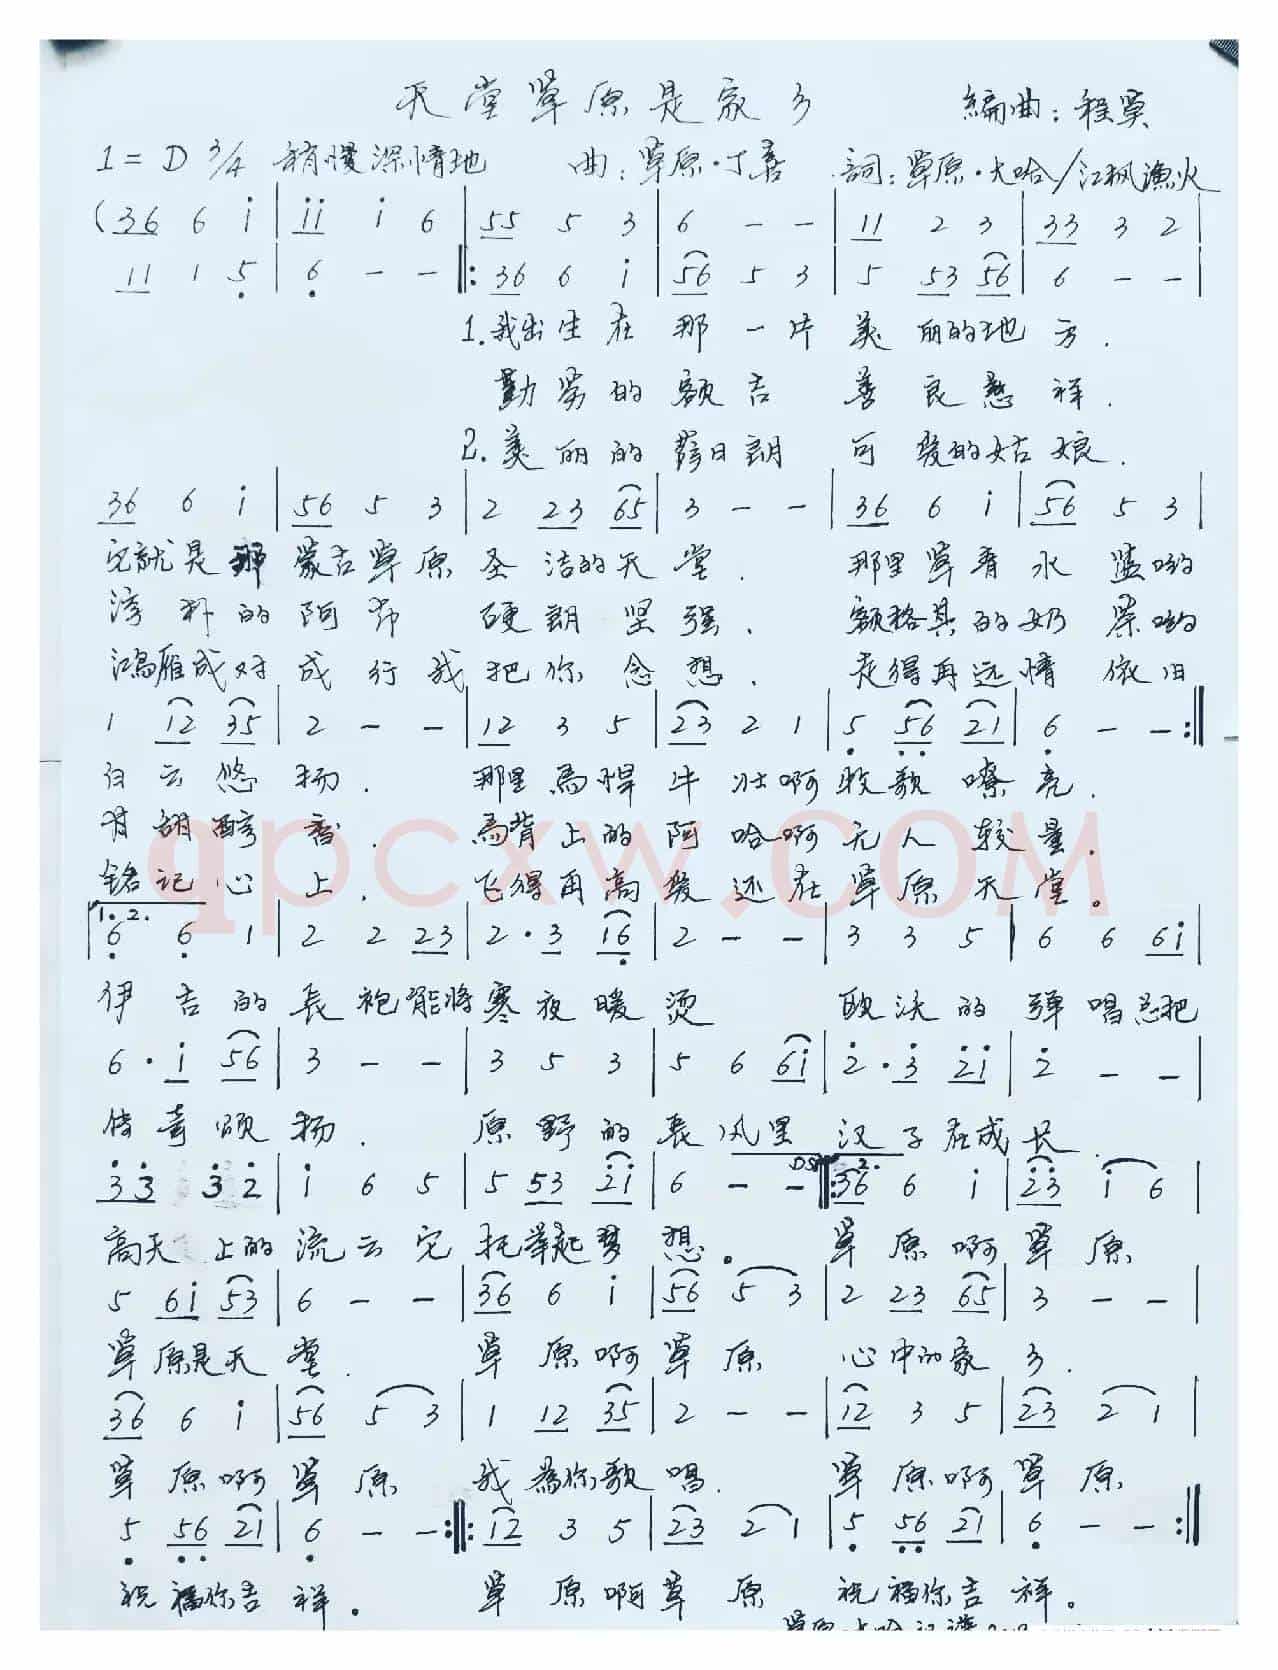 天堂草原是家乡
编曲：程奠
1=D 3/4 稍慢深情地 曲：草原·丁喜 詞：草原·大哈/江枫渔火
(36 6 i | ii i 6 | 55 5 3 | 6 - - | 11 2 3 | 33 3 2 |
11 1 5 | 6 - - ‖: 36 6 i | 56 5 3 | 5 53 56 | 6 - - |
1.我出生在那一片美丽的地方.
勤劳的额吉善良慈祥.
2.美丽的萨日朗可爱的姑娘.
36 6 i | 56 5 3 | 2 23 65 | 3 - - | 36 6 i | 56 5 3 |
它就是那蒙古草原圣洁的天堂. 那里草青水蓝哟
淳朴的阿爷硬朗坚强. 额格其的奶茶哟
鸿雁成对成行我把你念想. 走得再远情依旧
1 12 35 | 2 - - | 12 3 5 | 23 2 1 | 5 56 21 | 6 - - :‖
白云悠扬. 那里馬悍牛壮啊牧歌嘹亮.
甘甜醇香. 馬背上的阿哈啊无人较量.
铭记心上. 飞得再高爱还在草原天堂。
qpcxw.com
1.2.
6 6 1 | 2 2 23 | 2·3 16 | 2 - - | 3 3 5 | 6 6 6i |
伊吉的長袍能将寒夜暖烫 耿沃的弹唱总把
6·i 56 | 3 - - | 3 5 3 | 5 6 6i | 2·3 2i | 2 - - |
传奇颂扬. 原野的長风里汉子在成长
DS 2.
33 32 | i 6 5 | 5 53 2i | 6 - - :‖: 36 6 i | 23 i 6 |
高天上的流云它托举起梦想。草原啊草原
5 6i 53 | 6 - - | 36 6 i | 56 5 3 | 2 23 65 | 3 - - |
草原是天堂. 草原啊草原心中的家乡.
36 6 i | 56 5 3 | 1 12 35 | 2 - - | 12 3 5 | 23 2 1 |
草原啊草原我為你歌唱. 草原啊草原
5 56 21 | 6 - - :‖: 12 3 5 | 23 2 1 | 5 56 21 | 6 - - :‖
祝福你吉祥。草原啊草原祝福你吉祥。